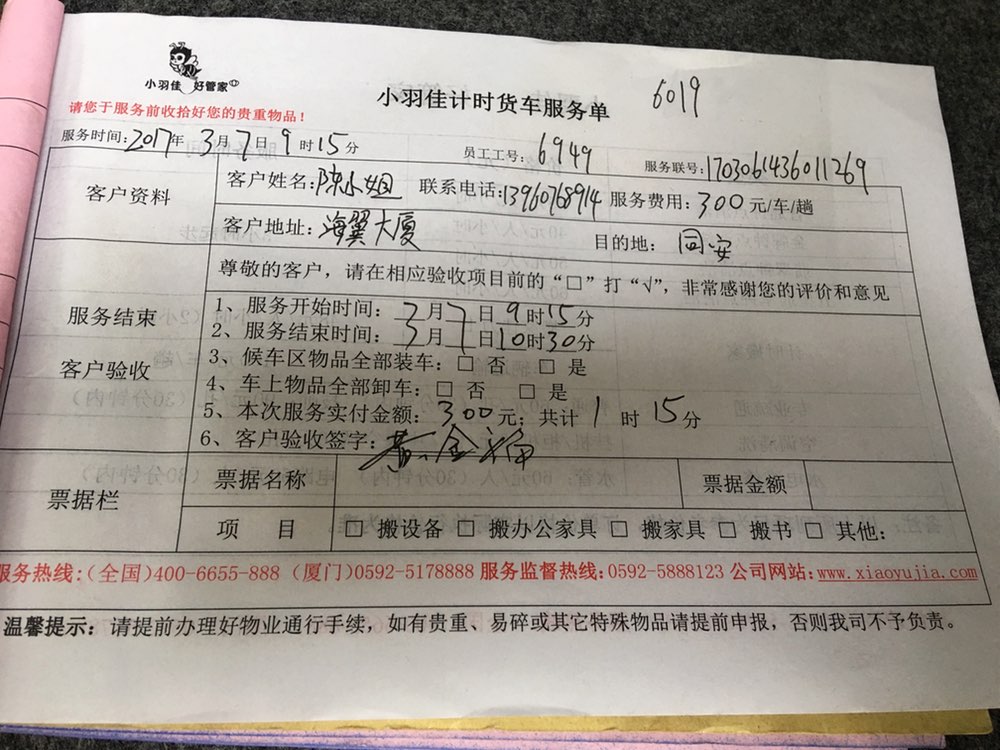 小羽佳 好管家
小羽佳计时货车服务单
6019
请您于服务前收拾好您的贵重物品！
服务时间：2017年3月7日9时15分
员工工号：6949
服务联号：1703061436011269
客户资料
客户姓名：陈小姐 联系电话：13960768914 服务费用：300元/车/趟
客户地址：海翼大厦 目的地：同安
服务结束
客户验收
尊敬的客户，请在相应验收项目前的“□”打“√”，非常感谢您的评价和意见
1、服务开始时间：3月7日9时15分
2、服务结束时间：3月7日10时30分
3、候车区物品全部装车：□ 否 □ 是
4、车上物品全部卸车：□ 否 □ 是
5、本次服务实付金额：300元；共计1时15分
6、客户验收签字：黄金福
票据栏
票据名称 票据金额
项 目 □ 搬设备 □ 搬办公家具 □ 搬家具 □ 搬书 □ 其他：
服务热线：（全国）400-6655-888（厦门）0592-5178888 服务监督热线：0592-5888123 公司网站：www.xiaoyujia.com
温馨提示：请提前办理好物业通行手续，如有贵重、易碎或其它特殊物品请提前申报，否则我司不予负责。